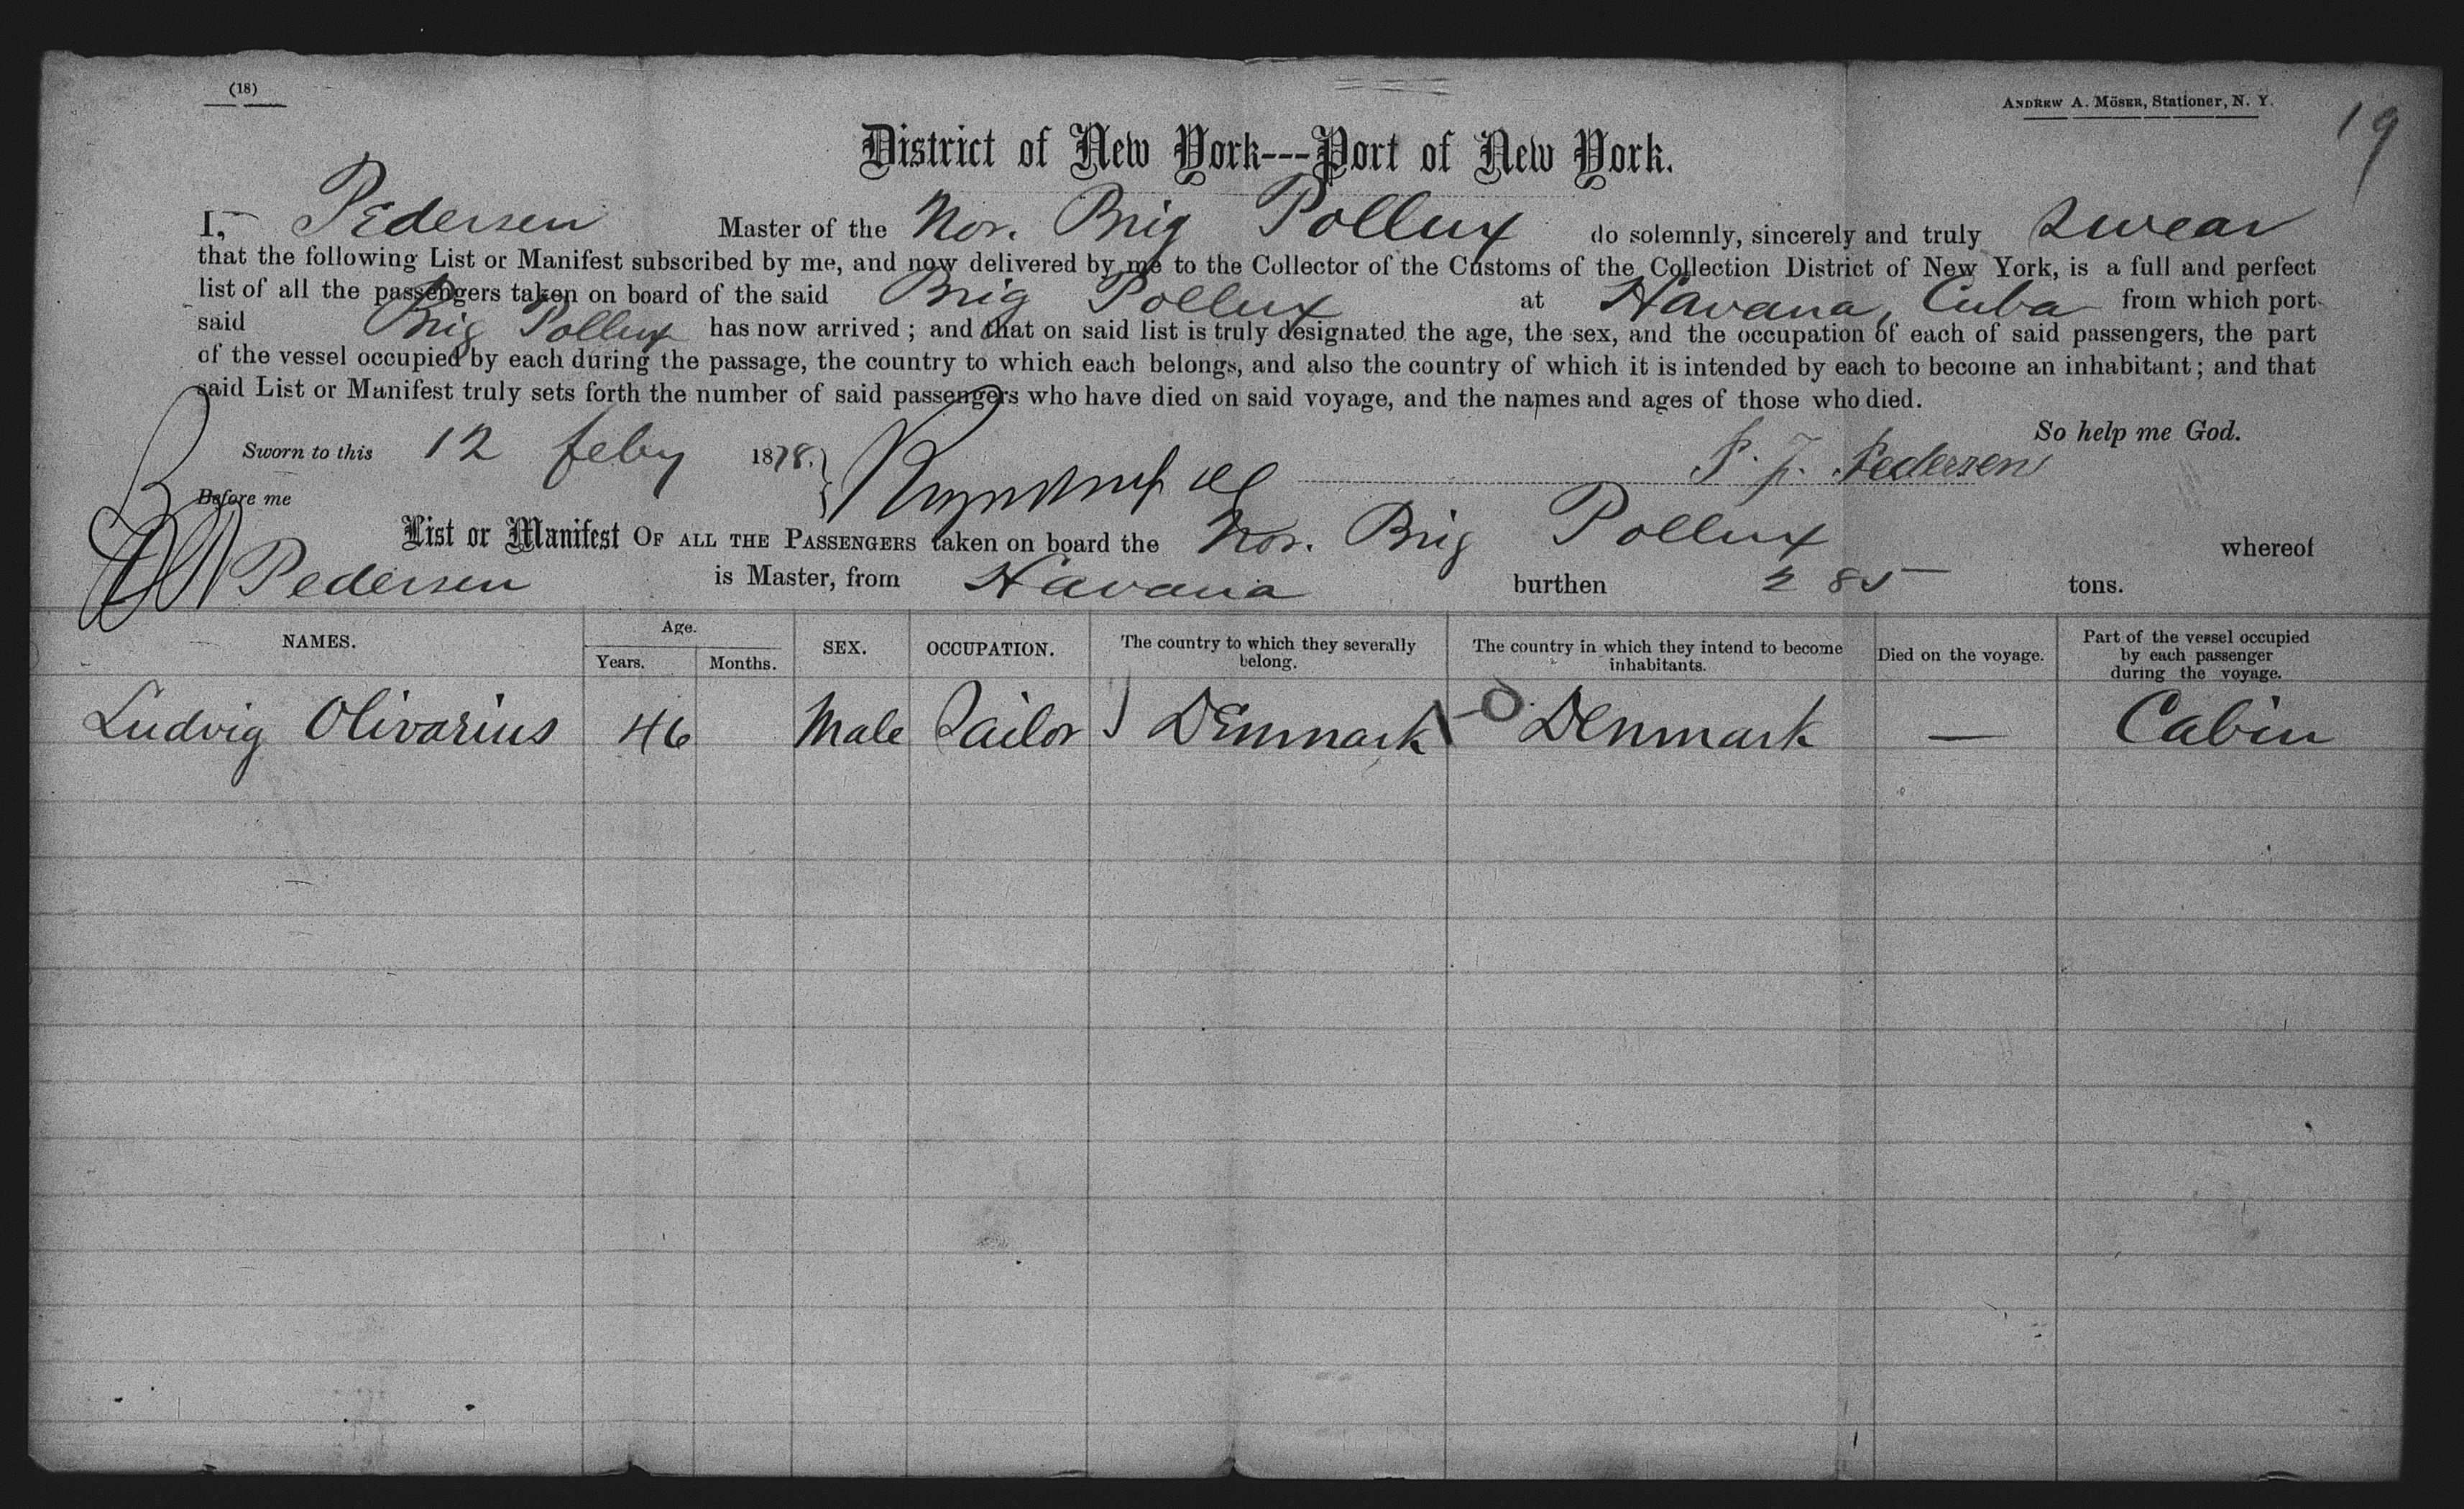 (18)
ANDREW A. MÖSER, Stationer, N. Y.
19
District of New York---Port of New York.
I, Pedersen Master of the Nor. Brig Pollux do solemnly, sincerely and truly swear
that the following List or Manifest subscribed by me, and now delivered by me to the Collector of the Customs of the Collection District of New York, is a full and perfect
list of all the passengers taken on board of the said Brig Pollux at Havana, Cuba from which port
said Brig Pollux has now arrived; and that on said list is truly designated the age, the sex, and the occupation of each of said passengers, the part
of the vessel occupied by each during the passage, the country to which each belongs, and also the country of which it is intended by each to become an inhabitant; and that
said List or Manifest truly sets forth the number of said passengers who have died on said voyage, and the names and ages of those who died.
So help me God.
Sworn to this 12 feby 1878. P. J. Pedersen
Before me
List or Manifest OF ALL THE PASSENGERS taken on board the Nor. Brig Pollux whereof
Pedersen is Master, from Havana burthen 285 tons.
NAMES. Age. Years. Months. SEX. OCCUPATION. The country to which they severally belong. The country in which they intend to become inhabitants. Died on the voyage. Part of the vessel occupied by each passenger during the voyage.
Ludvig Olivarius 46 Male Tailor Denmark Denmark — Cabin